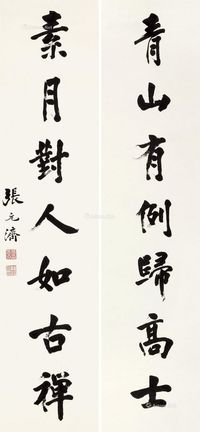 青山有例歸高士
素月對人如古禪
張元濟